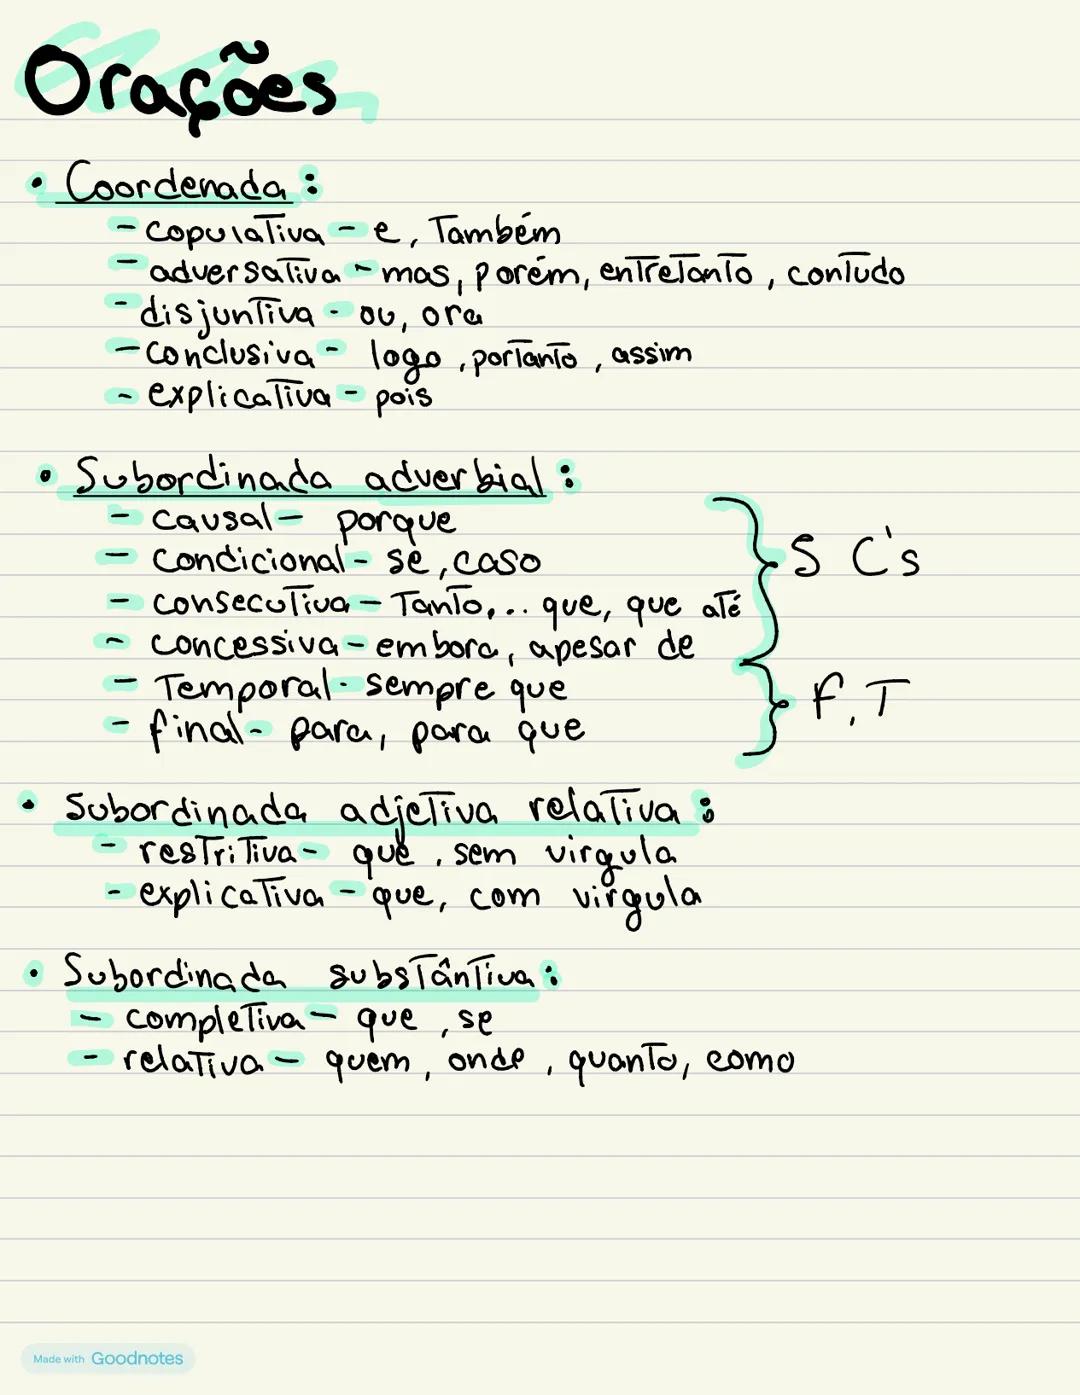 Orações
• Coordenada:
- copulativa - e, Também
- adversativa - mas, porém, entretanto, contudo
- disjuntiva - ou, ora
- conclusiva - logo, portanto, assim
- explicativa - pois
• Subordinada adverbial:
- causal - porque
- condicional - se, caso
- consecutiva - Tanto,... que, que até
- concessiva - embora, apesar de
5 C's
- Temporal - sempre que
- final - para, para que
F, T
• Subordinada adjetiva relativa:
- restritiva - que, sem virgula
- explicativa - que, com virgula
• Subordinada substântiva:
- completiva - que, se
- relativa - quem, onde, quanto, como
Made with Goodnotes